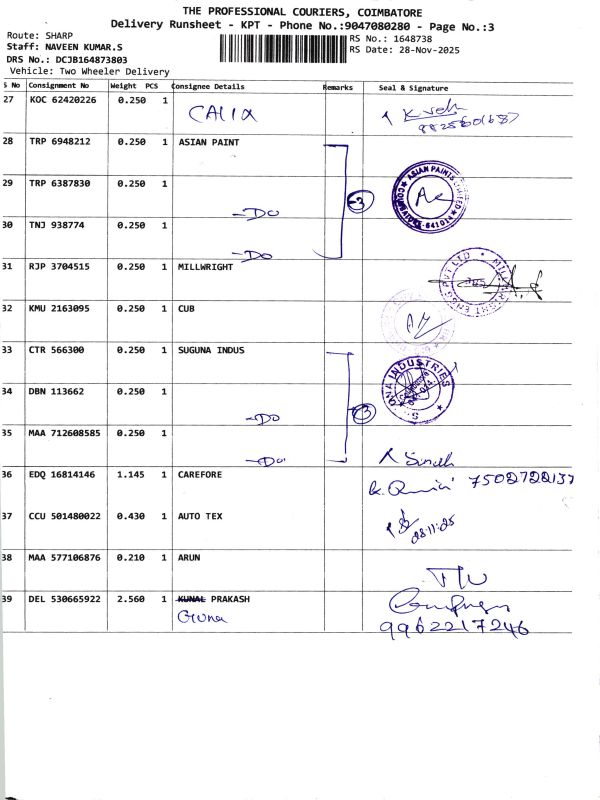 THE PROFESSIONAL COURIERS, COIMBATORE
Delivery Runsheet - KPT - Phone No.:9047080280 - Page No.:3
Route: SHARP
Staff: NAVEEN KUMAR.S
DRS No.: DCJB164873803
Vehicle: Two Wheeler Delivery
RS No.: 1648738
RS Date: 28-Nov-2025
S No Consignment No Weight PCS Consignee Details Remarks Seal & Signature
27 KOC 62420226 0.250 1 CALIX
28 TRP 6948212 0.250 1 ASIAN PAINT
29 TRP 6387830 0.250 1 -DO
3
ASIAN PAINTS LIMITED COIMBATORE 641014
30 TNJ 938774 0.250 1 -DO
31 RJP 3704515 0.250 1 MILLWRIGHT
32 KMU 2163095 0.250 1 CUB
33 CTR 566300 0.250 1 SUGUNA INDUS
34 DBN 113662 0.250 1 -DO
3
INDUSTRIES
35 MAA 712608585 0.250 1 -DO
36 EDQ 16814146 1.145 1 CAREFORE 7502722137
37 CCU 501480022 0.430 1 AUTO TEX 28.11.25
38 MAA 577106876 0.210 1 ARUN
39 DEL 530665922 2.560 1 KUNAL PRAKASH
Guna
9962217246